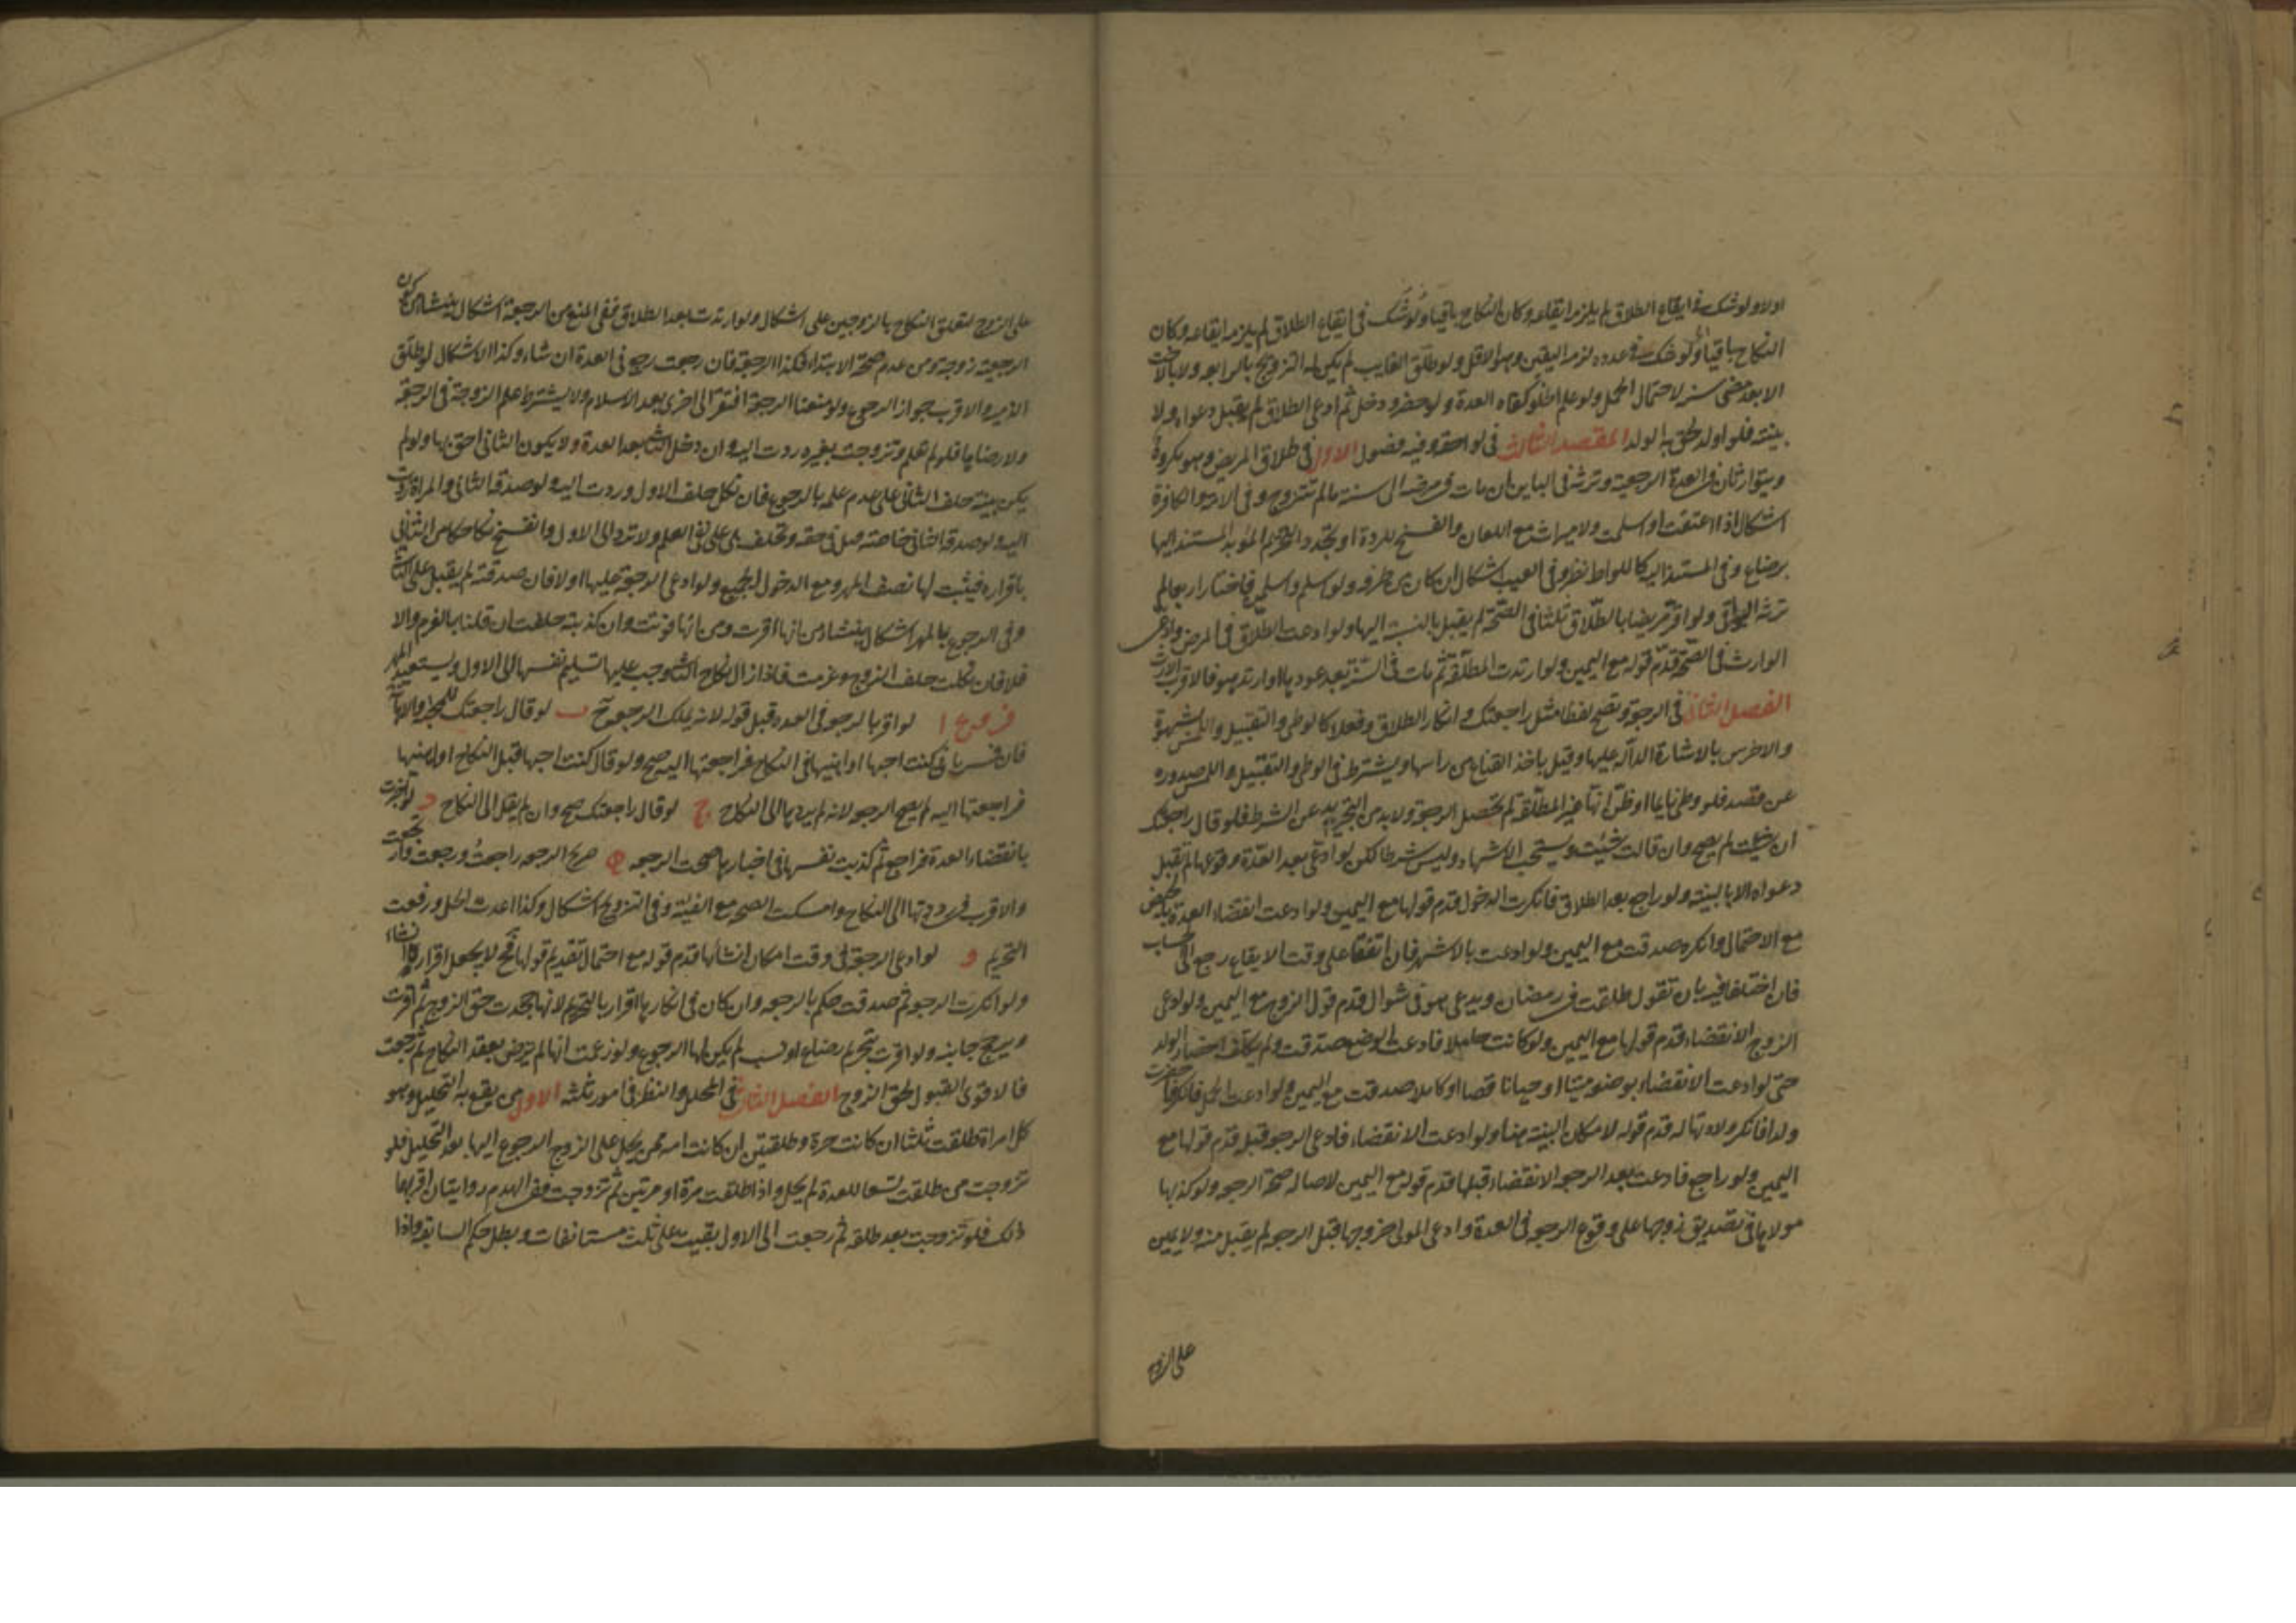 اولا ولو شك في ايقاع الطلاق لم يلزمه ايقاعه وكان النكاح باقيا ولو شك في ايقاع الطلاق لم يلزمه ايقاعه وكان
النكاح باقيا ولو شك في عدده لزمه اليقين وهو الاقل ولو طلق الغايب لم يكن له التزويج بالرابعه ولا بالاخت
الا بعد مضي سنه لاحتمال الحمل ولو علم الخلو كفاه العدة ولو حضر ودخل ثم ادعى الطلاق لم يقبل دعواه ولا
بينته فلو اولد لحق به الولد المقصد الثالث في لواحقه وفيه فصول الاول في طلاق المريض وهو مكروه
ويتوارثان في العدة الرجعية وترثه في الباين ان مات في مرضه الى سنة مالم تتزوج وفي الامة والكافرة
اشكال اذا اعتقت او اسلمت ولا ميراث مع اللعان والفسخ للردة او تجدد التحريم المؤبد المستند اليها
برضاع وفي المستند اليه كاللواط نظر وفي العيب اشكال ان كان من طرفه ولو اسلم واسلمن فاختار اربعا لم
ترثه البواقي ولو اقر مريضا بالطلاق ثلثا في الصحة لم يقبل بالنسبة اليها ولو ادعت الطلاق في المرض وادعى
الوارث في الصحة قدم قوله مع اليمين ولو ارتدت المطلقة ثم مات في السنة بعد عودها او ارتد هو فالاقرب الارث
الفصل الثاني في الرجعة وتصح لفظا مثل راجعتك وانكار الطلاق وفعلا كالوطي والتقبيل واللمس بشهوة
والاخرس بالاشارة الدالة عليها وقيل باخذ القناع من راسها ويشترط في الوطي والتقبيل واللمس صدوره
عن قصد فلو وطي نايما او ظن انها غير المطلقة لم تحصل الرجعة ولا بد من التجريد عن الشرط فلو قال راجعتك
ان شئت لم يصح وان قالت شئت ويستحب الاشهاد وليس شرطا لكن لو ادعى بعد العدة وقوعها لم تقبل
دعواه الا بالبينة ولو راجع بعد الطلاق فانكرت الدخول قدم قولها مع اليمين ولو ادعت انقضاء العدة بالحيض
مع الاحتمال وانكر صدقت مع اليمين ولو ادعت بالاشهر فان اتفقا على وقت الايقاع رجع الى الحساب
فان اختلفا فيه بان تقول طلقت في رمضان ويدعي هو في شوال قدم قول الزوج مع اليمين ولو ادعى
الزوج الانقضاء قدم قولها مع اليمين ولو كانت حاملا فادعت الوضع صدقت ولم يكلف احضار الولد
حتى لو ادعت الانقضاء بوضعه ميتا او حيا ناقصا او كاملا صدقت مع اليمين ولو ادعت الحمل فانكر فاحضرت
ولدا فانكر ولادتها له قدم قوله لامكان البينة هنا ولو ادعت الانقضاء فادعى الرجعة قبله قدم قولها مع
اليمين ولو راجع فادعت بعد الرجعة الانقضاء قبلها قدم قوله مع اليمين لاصالة صحة الرجعة ولو كذبها
مولاها في تصديق زوجها على وقوع الرجعة في العدة وادعى المولى خروجها قبل الرجعة لم يقبل منه ولا يمين
على الزوج
على الزوج لتعلق النكاح بالزوجين على اشكال ولو ارتدت بعد الطلاق ففي المنع من الرجعة اشكال ينشا من كون
الرجعية زوجة ومن عدم صحة الابتداء فكذا الرجعة فان رجعت رجع في العدة ان شاء وكذا الاشكال لو طلق
الذمية والاقرب جواز الرجوع ولو منعنا الرجعة افتقر الى اخرى بعد الاسلام ولا يشترط علم الزوجة في الرجعة
ولا رضاها فلو لم تعلم وتزوجت بغيره ردت اليه وان دخل الثاني بعد العدة ولا يكون الثاني احق بها ولو لم
يكن بينة حلف الثاني على عدم علمه بالرجوع فان نكل حلف الاول وردت اليه ولو صدقه الثاني والمراة ردت
اليه ولو صدقه الثاني خاصة قبل في حقه وتحلف هي على نفي العلم ولا ترد الى الاول وانفسخ نكاحها من الثاني
باقراره فيثبت لها نصف المهر ومع الدخول الجميع ولو ادعى الرجعة عليها اولا فان صدقته لم يقبل على الثاني
وفي الرجوع بالمهر اشكال ينشا من انها اقرت ومن انها فوتت وان كذبته حلفت ان قلنا بالغرم والا
فلا فان نكلت حلف الزوج وغرمت فاذا زال نكاح الثاني وجب عليها تسليم نفسها الى الاول ويستعيد المهر
فروع ا لو اقر بالرجعة في العدة قبل قوله لانه يملك الرجعة ح ب لو قال راجعتك للمحبة او الاهانة
فان فسر باني كنت احبها او اهينها في النكاح فراجعتها اليه صح ولو قال كنت احبها قبل النكاح او اهينها
فراجعتها اليه لم يصح الرجعة لانه لم يردها الى النكاح ج لو قال راجعتك صح وان لم يقل الى النكاح د لو اخبرت
بانقضاء العدة فراجع ثم كذبت نفسها في اخبارها صحت الرجعة ه صريح الرجعة راجعت ورجعت وارتجعت
والاقرب في رددتها الى النكاح وامسكت الصحة مع النية وفي التزويج اشكال وكذا اعدت الحل ورفعت
التحريم و لو ادعى الرجعة في وقت امكان انشائها قدم قوله مع احتمال تقديم قولها فح لا يجعل اقراره انشاء
ولو انكرت الرجعة ثم صدقت حكم بالرجعة وان كان في انكارها اقرار بالتحريم لانها جحدت حق الزوج ثم اقرت
ويرجح جانبه ولو اقرت بتحريم رضاع او نسب لم يكن لها الرجوع ولو زعمت انها لم ترض بعقد النكاح ثم رجعت
فالاقوى القبول لحق الزوج الفصل الثالث في المحلل والنظر في امور ثلثة الاول من يقع به التحليل وهو
كل امراة طلقت ثلثا ان كانت حرة وطلقتين ان كانت امة حرم على الزوج الرجوع اليها الا بعد التحليل فلو
تزوجت من طلقت تسعا للعدة لم يحل واذا طلقت مرة او مرتين ثم تزوجت ففي الهدم روايتان اقربهما
ذلك فلو تزوجت بعد طلقه ثم رجعت الى الاول بقيت على ثلث مستانفات وبطل حكم السابقة واذا